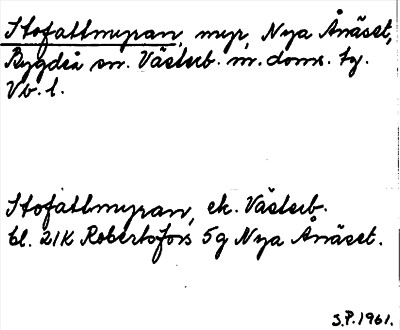 Stofattmyran, myr, Nya Ånäset,
Bygdeå sn. Västerb. n. doms. tg.
Vb. l.
Stofattmyran, ek. Västerb.
bl. 21K Robertsfors 5g Nya Ånäset.
S.P. 1961.